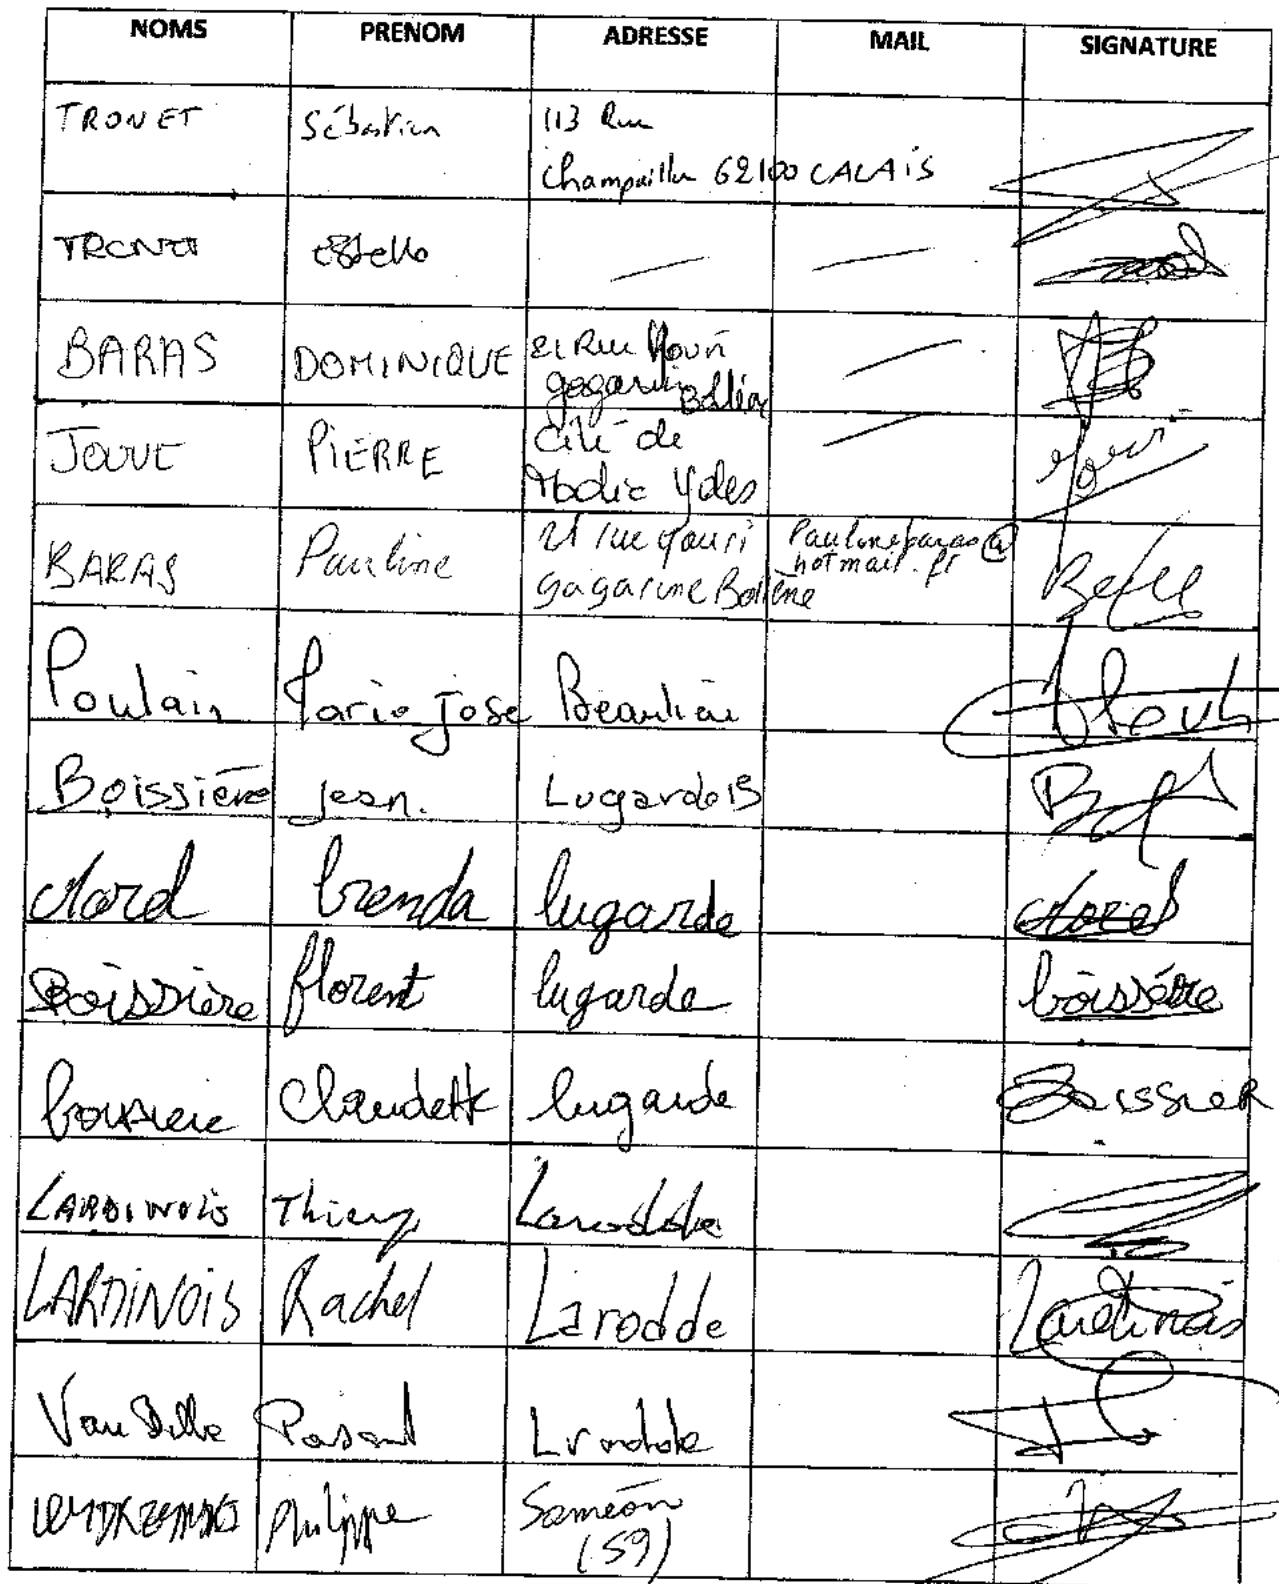 NOMS PRENOM ADRESSE MAIL SIGNATURE
TRONET Sébastien 113 Rue
62100 CALAIS
TRONET
BARAS DOMINIQUE 21 Rue Youri
gagarin Bollène
JOUVE PIERRE Cité de
Ydes
BARAS Pauline 21 rue youri Paulinebaras@
gagarine Bollène hotmail.fr
Poulain Marie Jose Beaulieu
Boissière Jean. Lugarde
brenda lugarde
Boissière florent lugarde boissière
Claudette lugarde BoissieR
LARDINOIS Thierry Larodde
LARDINOIS Rachel Larodde Lardinois
Larodde
Philippe Saméon
(59)